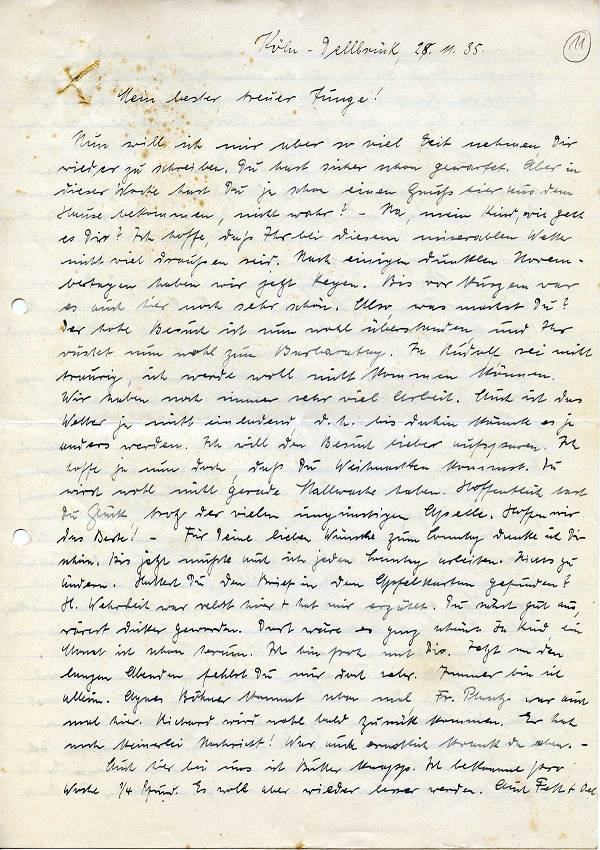 Köln-Dellbrück, 28. 11. 35.
11
Mein bester, treuer Junge!
Nun will ich mir aber so viel Zeit nehmen, Dir
wieder zu schreiben. Du hast sicher schon gewartet. Aber in
dieser Woche hast Du ja schon einen Gruß hier aus dem
Hause bekommen, nicht wahr? – Na, mein Kind, wie geht
es Dir? Ich hoffe, daß Ihr bei diesem miserablen Wetter
nicht viel draußen seid. Nach einigen dunklen Novem-
bertagen haben wir jetzt Regen. Bis vor kurzem war
es auch hier noch sehr schön. Also was machst Du?
Der hohe Besuch ist nun wohl überstanden, und Ihr
rüstet nun wohl zum Barbaratag. Ja Rudolf sei nicht
traurig, ich werde wohl nicht kommen können.
Wir haben noch immer sehr viel Arbeit. Auch ist das
Wetter ja nicht einladend d.h. bis dahin könnte es ja
anders werden. Ich will den Besuch lieber aufsparen. Ich
hoffe ja nun doch, daß Du Weihnachten kommst. Du
wirst wohl nicht gerade Stallwache haben. Hoffentlich hast
Du Glück trotz der vielen ungünstigen Hoffen wir
das Beste! – Für Deine lieben Wünsche zum Sonntag danke ich Dir
schön. Bis jetzt mußte auch ich jeden Sonntag arbeiten. Nichts zu
ändern. Hattest Du den Brief in dem Apfelkarton gefunden?
H. Wahrheit war selbst hier + hat mir erzählt. Du sähst gut aus,
wärest dicker geworden. Dort wäre es ganz schön. Ja Kind, ein
Monat ist schon herum. Ich bin froh mit Dir. Jetzt an den
langen Abenden fehlst Du mir doch sehr. Immer bin ich
allein. Agnes Böhner kommt schon mal. Fr. war auch
mal hier. Richard wird wohl bald zurück kommen. Er hat
noch keinerlei Nachricht! War auch ernstlich krank da oben. –
Auch hier bei uns ist Butter knapp. Ich bekomme pro
Woche 1/4 Pfund. Es soll aber wieder besser werden. Auch Fett + Oel